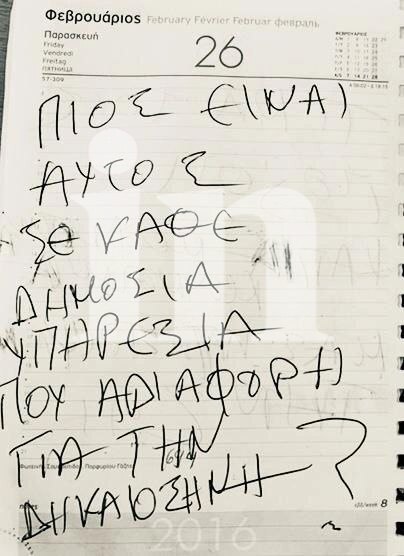 Φεβρουάριος February Février Februar февраль
Παρασκευή
Friday
Vendredi
Freitag
пятница
57-309
26
ΦΕΒΡΟΥΑΡΙΟΣ
ΠΙΟΣ ΕΙΝΑΙ
ΑΥΤΟΣ
ΣΕ ΚΑΘΕ
ΔΗΜΟΣΙΑ
ΥΠΗΡΕΣΙΑ
ΠΟΥ ΑΔΙΑΦΟΡΗ
ΓΙΑ ΤΗΝ
ΔΗΚΑΙΟΣΗΝΗ ?
εβδ/week 8
in
2016